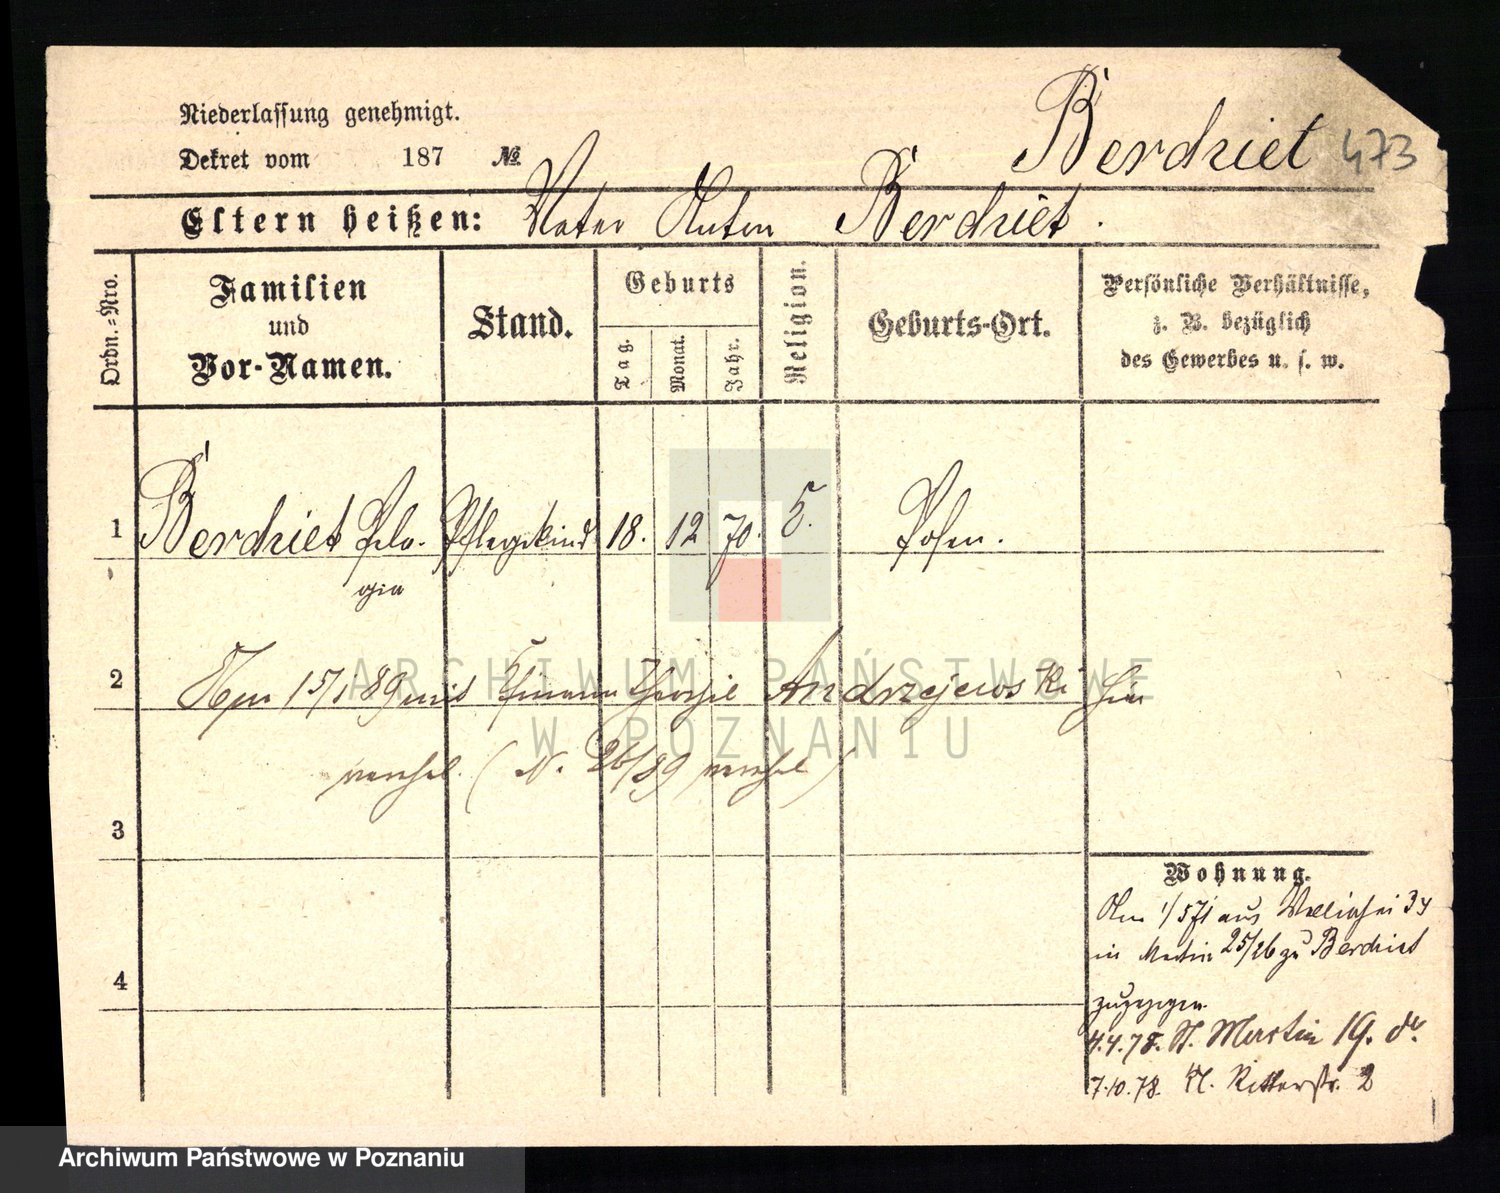 Niederlassung genehmigt.
Dekret vom 187 №
Berdziet 473
Eltern heißen: Vater Anton Berdziet.
Ordn.-Nro.
Familien und Vor-Namen.
Stand.
Geburts
Tag.
Monat.
Jahr.
Religion.
Geburts-Ort.
Persönliche Verhältnisse,
z. B. bezüglich
des Gewerbes u. s. w.
1 Berdziet Pela- Pflegekind 18. 12 70. Posen.
gia
2 15/1 89 mit Theophil Andrzejewski hier
verehel. (N. 26/89 verehel)
3
4
Wohnung.
aus Wallischei 34
in Martin 25/26 zu Berdziet
zugezogen
4.4.78. St. Martin 19. do.
7.10.78. Kl. Ritterstr. 2
ARCHIWUM PAŃSTWOWE
W POZNANIU
Archiwum Państwowe w Poznaniu